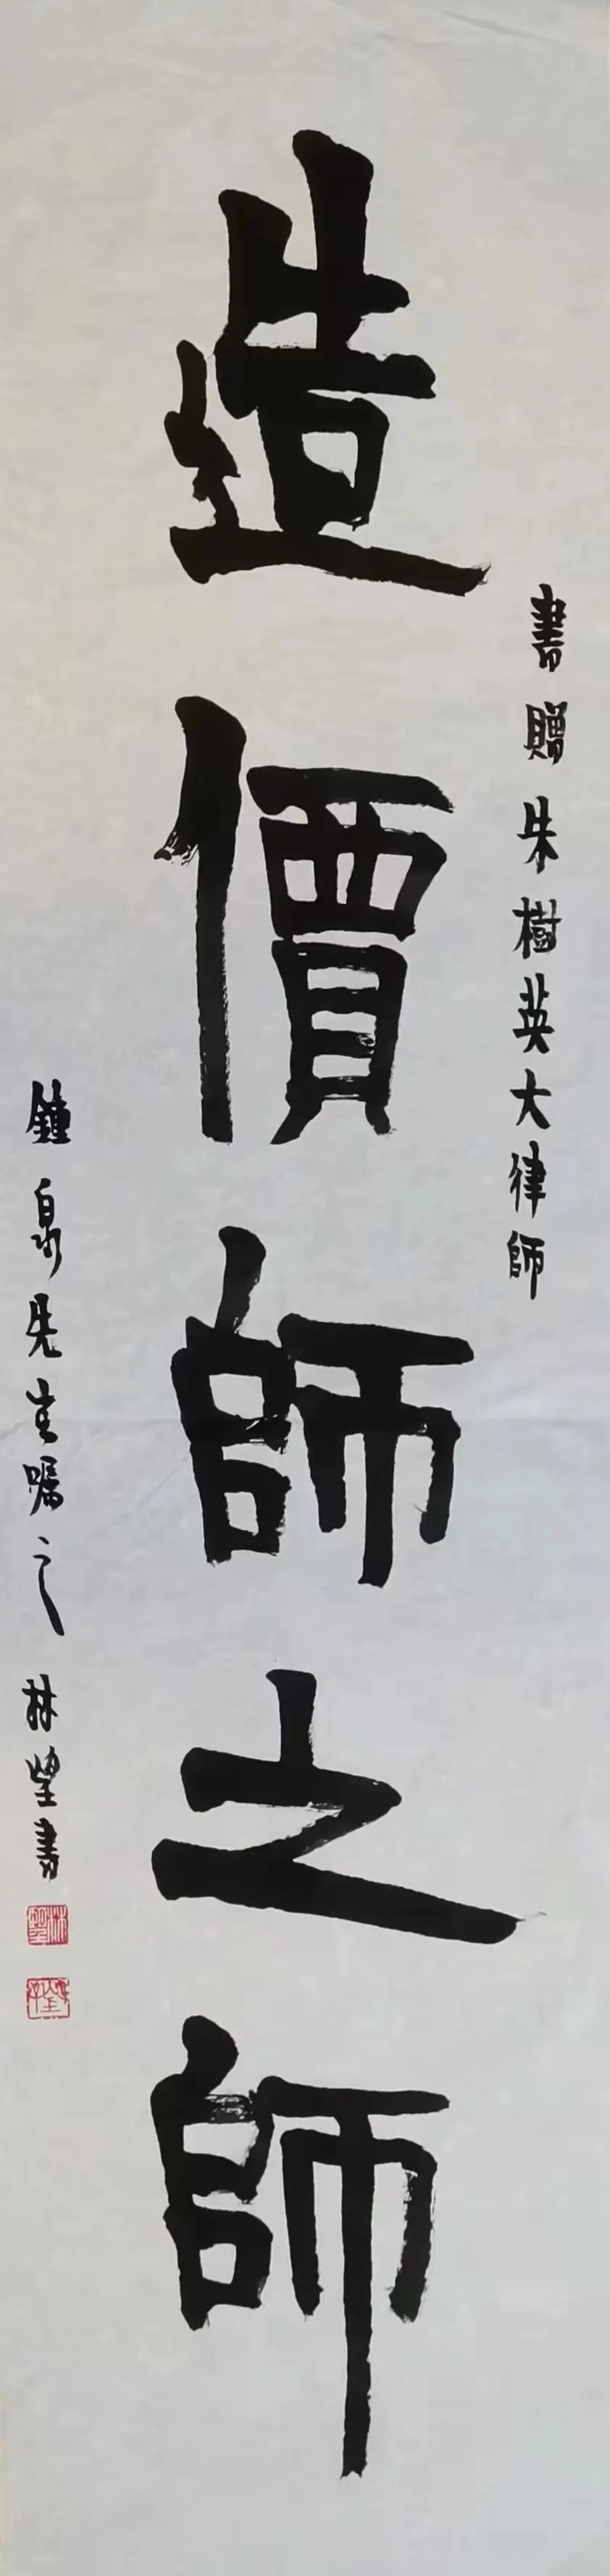 書贈朱樹英大律師
造價師之師
鐘泉先生嘱之
林墍書